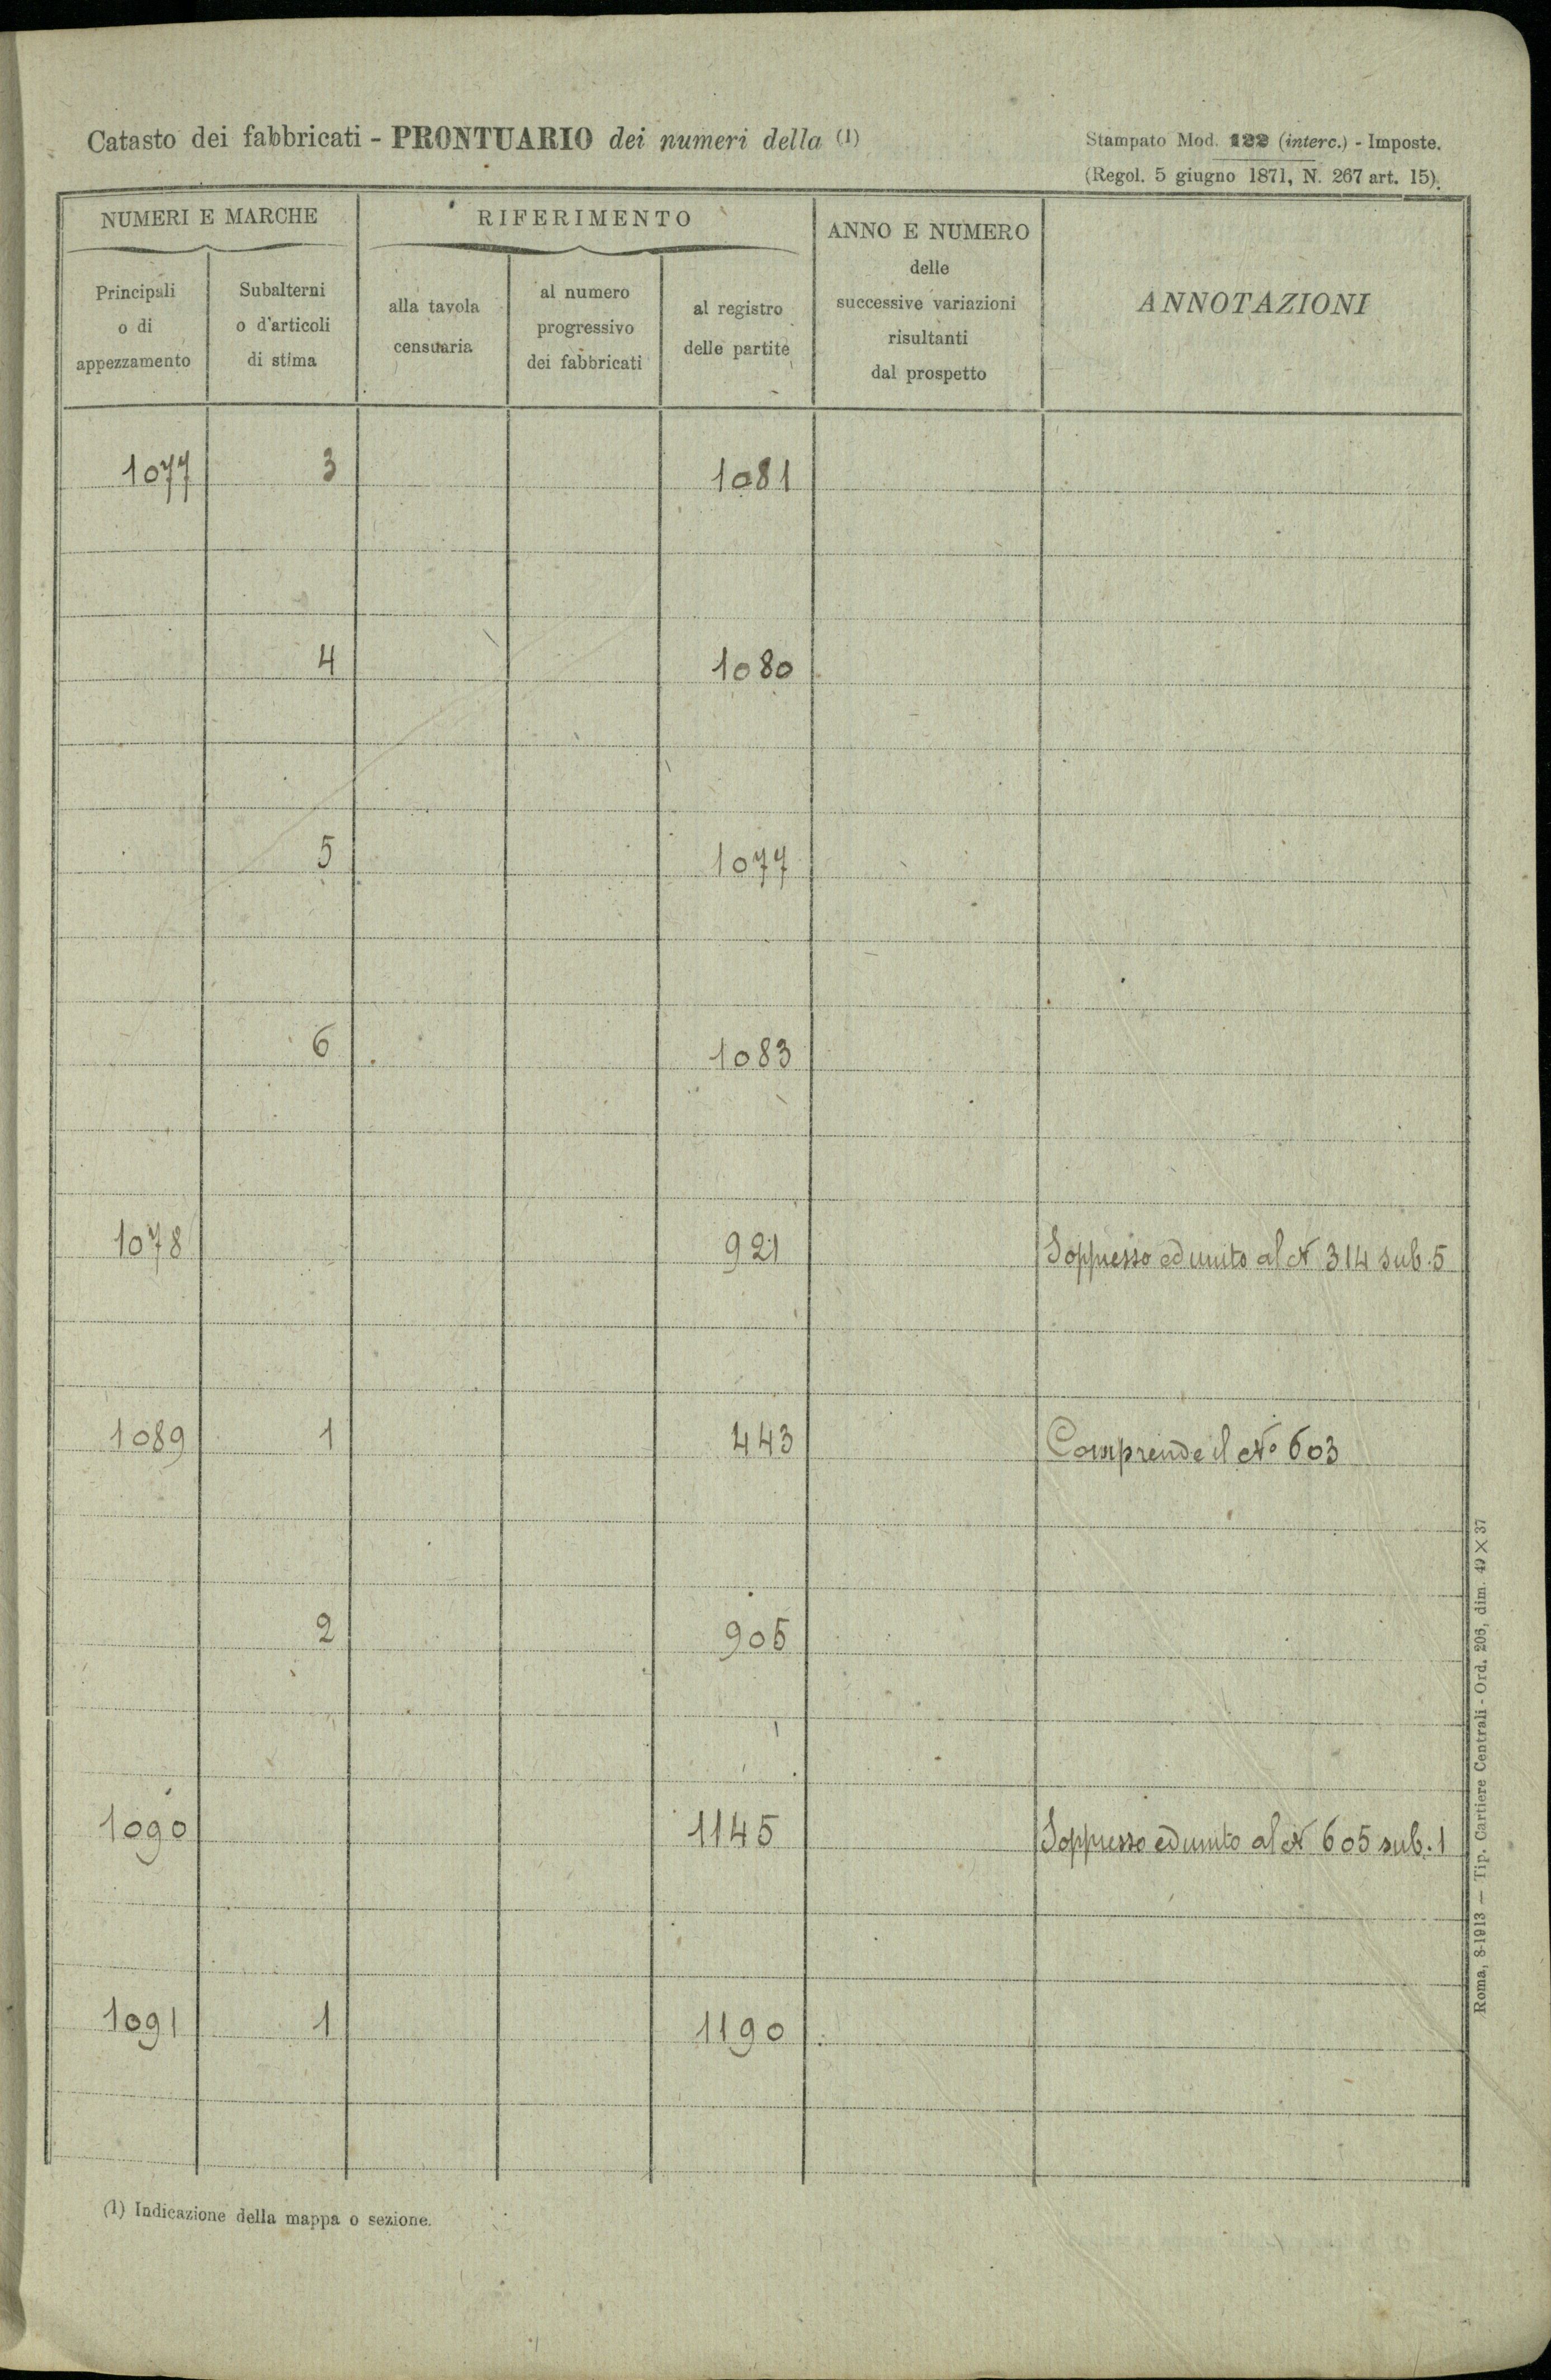 Catasto dei fabbricati - PRONTUARIO dei numeri della (1)
Stampato Mod. 122 (interc.) - Imposte.
(Regol. 5 giugno 1871, N. 267 art. 15).
NUMERI E MARCHE
RIFERIMENTO
ANNO E NUMERO
delle
successive variazioni
risultanti
dal prospetto
ANNOTAZIONI
Principali
o di
appezzamento
Subalterni
o d'articoli
di stima
alla tavola
censuaria
al numero
progressivo
dei fabbricati
al registro
delle partite
1077 3 1081
4 1080
5 1077
6 1083
1078 921 Soppresso ed unito al N 314 sub. 5
1089 1 443 Comprende il No 603
2 905
1090 1145 Soppresso ed unito al N 605 sub. 1
1091 1 1190
(1) Indicazione della mappa o sezione.
Roma, 8-1913 — Tip. Cartiere Centrali - Ord. 206, dim. 49 × 37